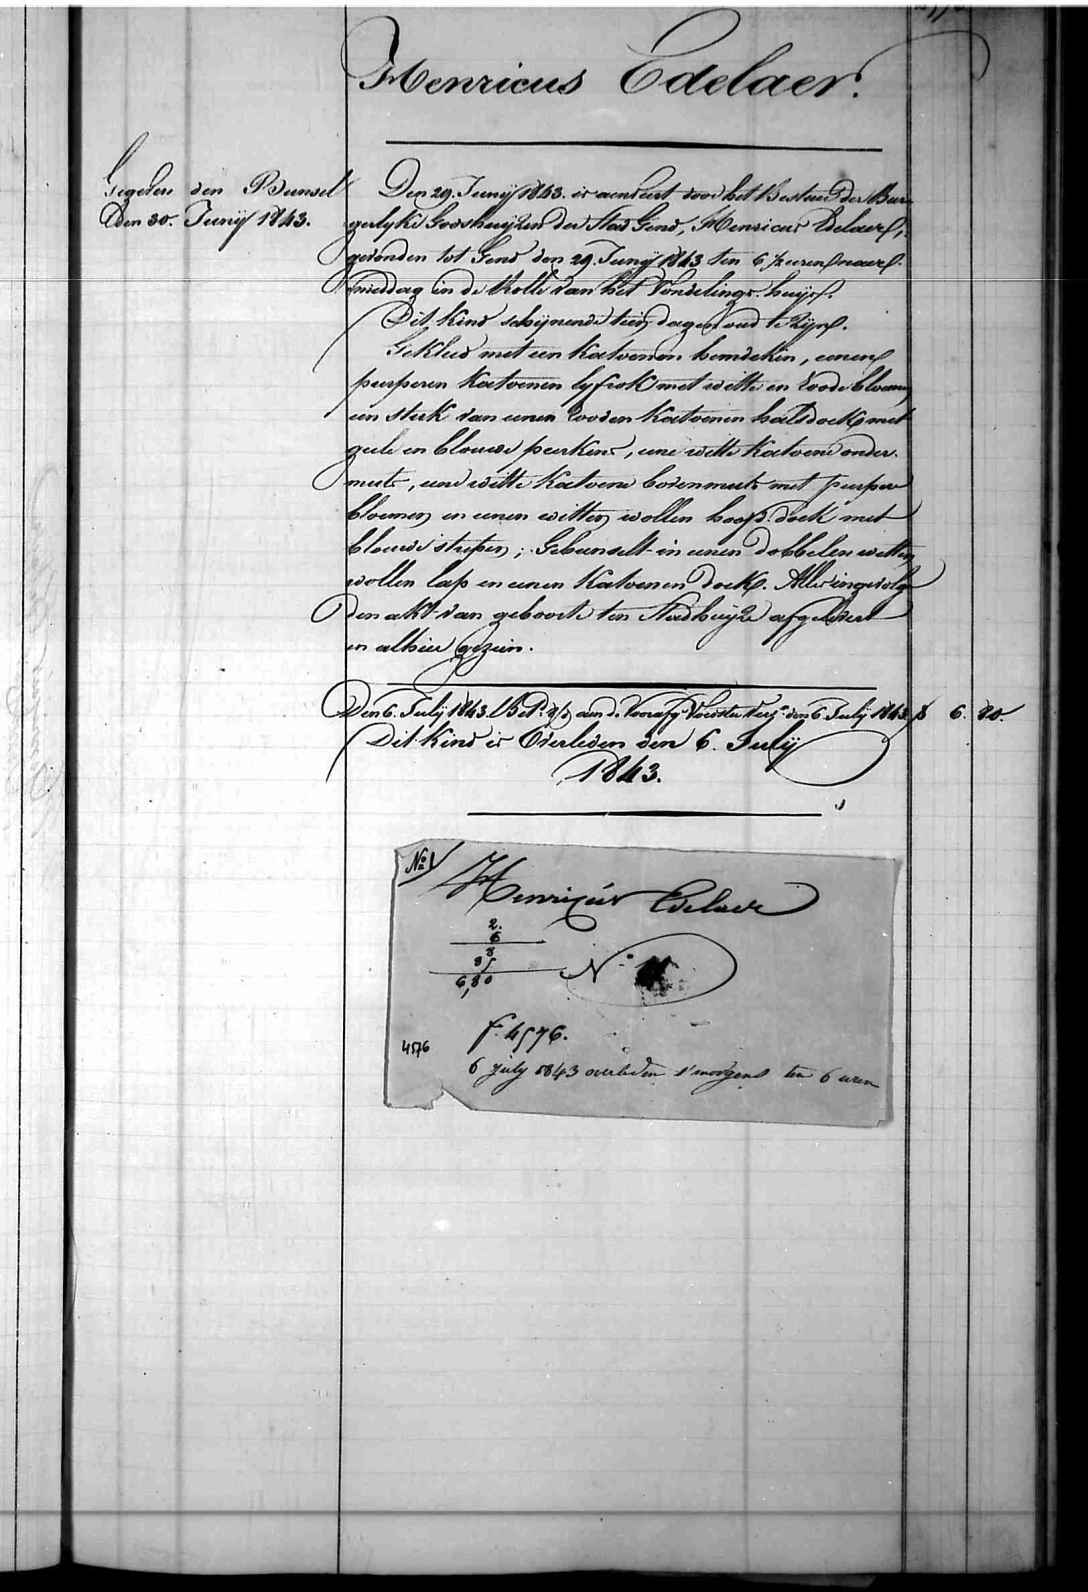 Henricus Edelaer.
Gegeven den Bunsel
den 30. Junij 1843.
Den 29. Junij 1843. is aenveirt door het Bestuur der Bur-
gerlyke Godshuijzen der Stad Gend, Henricus Edelaer,
gevonden tot Gend den 29. Junij 1843 ten 6 ½ uren naer-
middag in de Rolle van het Vondelings-huijs.
Dit Kind schijnende tien dagen oud te zijn.
Gekleed met een Katoenen hemdekin, eenen
purperen Katoenen lyfrok met witte en roode bloemen
een sterk van eenen rooden Katoenen halsdoek met
geele en blouwe peerkens, eene witte Katoene onder-
muts, eene witte Katoene bovenmuts met purpere
bloemen, en eenen witten wollen hoofdoek met
blouwe strepen; Gebunselt in eenen dobbelen witten
wollen lap en eenen Katoenen doek. Alles ingevolge
den akt van geboorte ten Stadhuijze afgeleverd
en alhier gezien.
Den 6. July 1843. Bet. aen d. Voorafg. den 6. July 1843. 6. 80.
Dit Kind is Overleden den 6. July
1843.
No 1
Henricus Edelaer
2.
6
8
85
6,80
No 11
f. 4576.
4576
6 july 1843 overleden s'morgens ten 6 uren